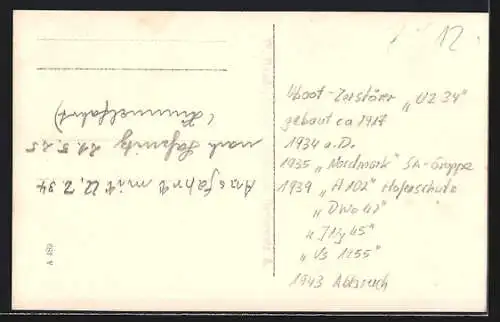 12
Uboot-Zerstörer „UZ 34"
gebaut ca 1917
1934 a.D.
1935 „Nordmark" SA-Gruppe
1939 „A 102" Hafenschutz
„DWo 42"
45"
„Vs 1255"
1943 Abbruch
Ausfahrt mit U.Z. 34
nach Saßnitz 21.5.25
(Himmelfahrt)